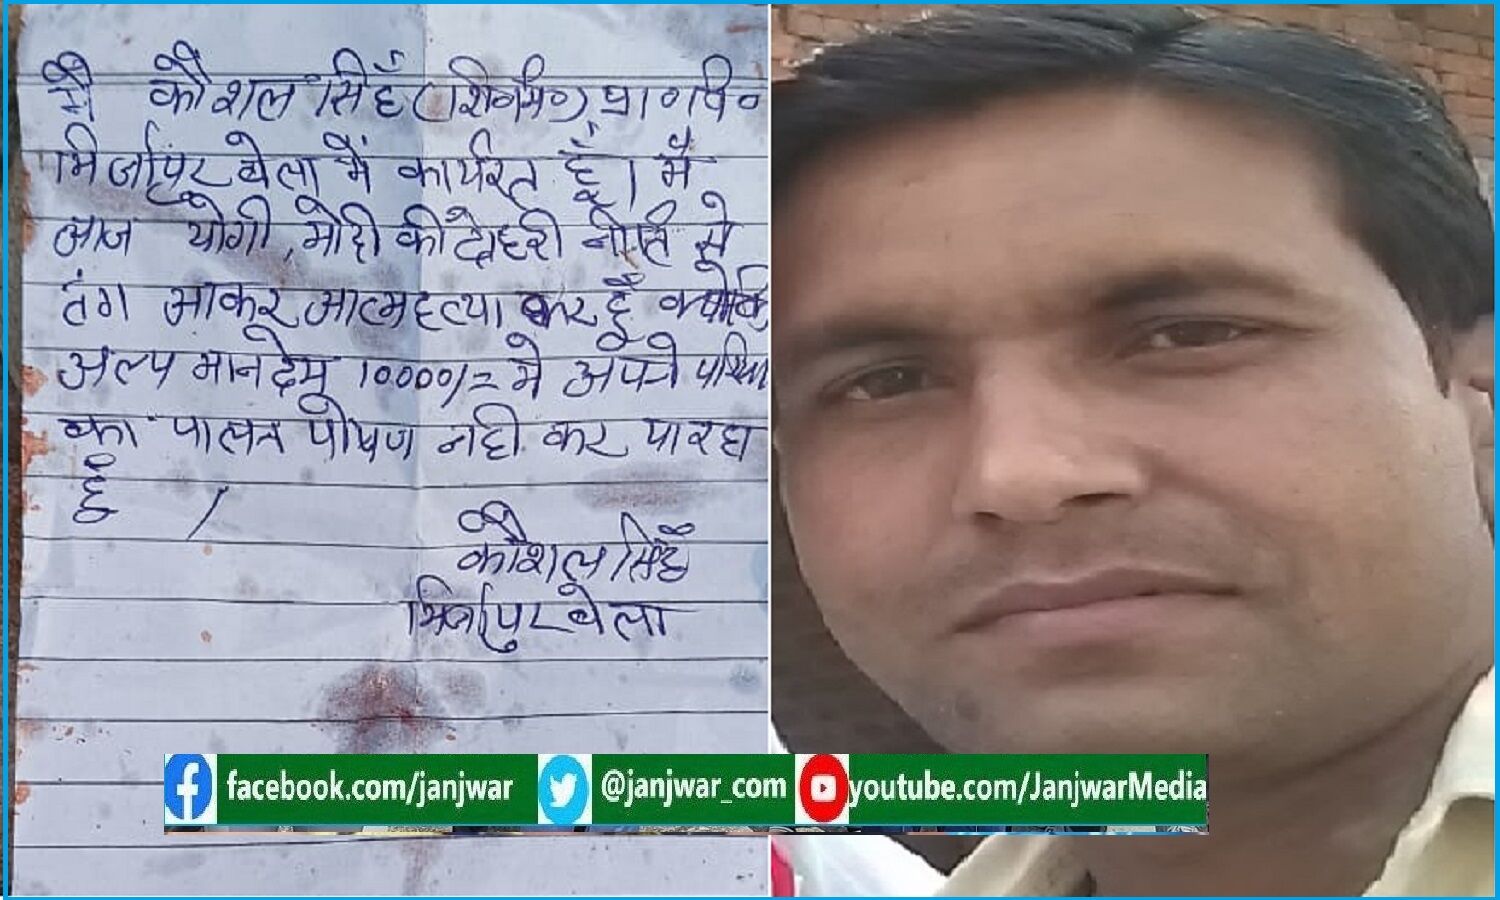 मै कौशल सिहँ (शि०मि०) प्रा०वि०
मिर्जापुर बेला मैं कार्यरत हूँ। मै
आज योगी, मोदी की दोहरी नीति से
तंग आकर आत्महत्या कर हूँ क्योकि
अल्प मानदेय 10000/= मे अपने परिवा
का पालन पोषण नही कर पा रहा
हूँ ।
कौशल सिहँ
मिर्जापुर बेला
facebook.com/janjwar @janjwar_com youtube.com/JanjwarMedia